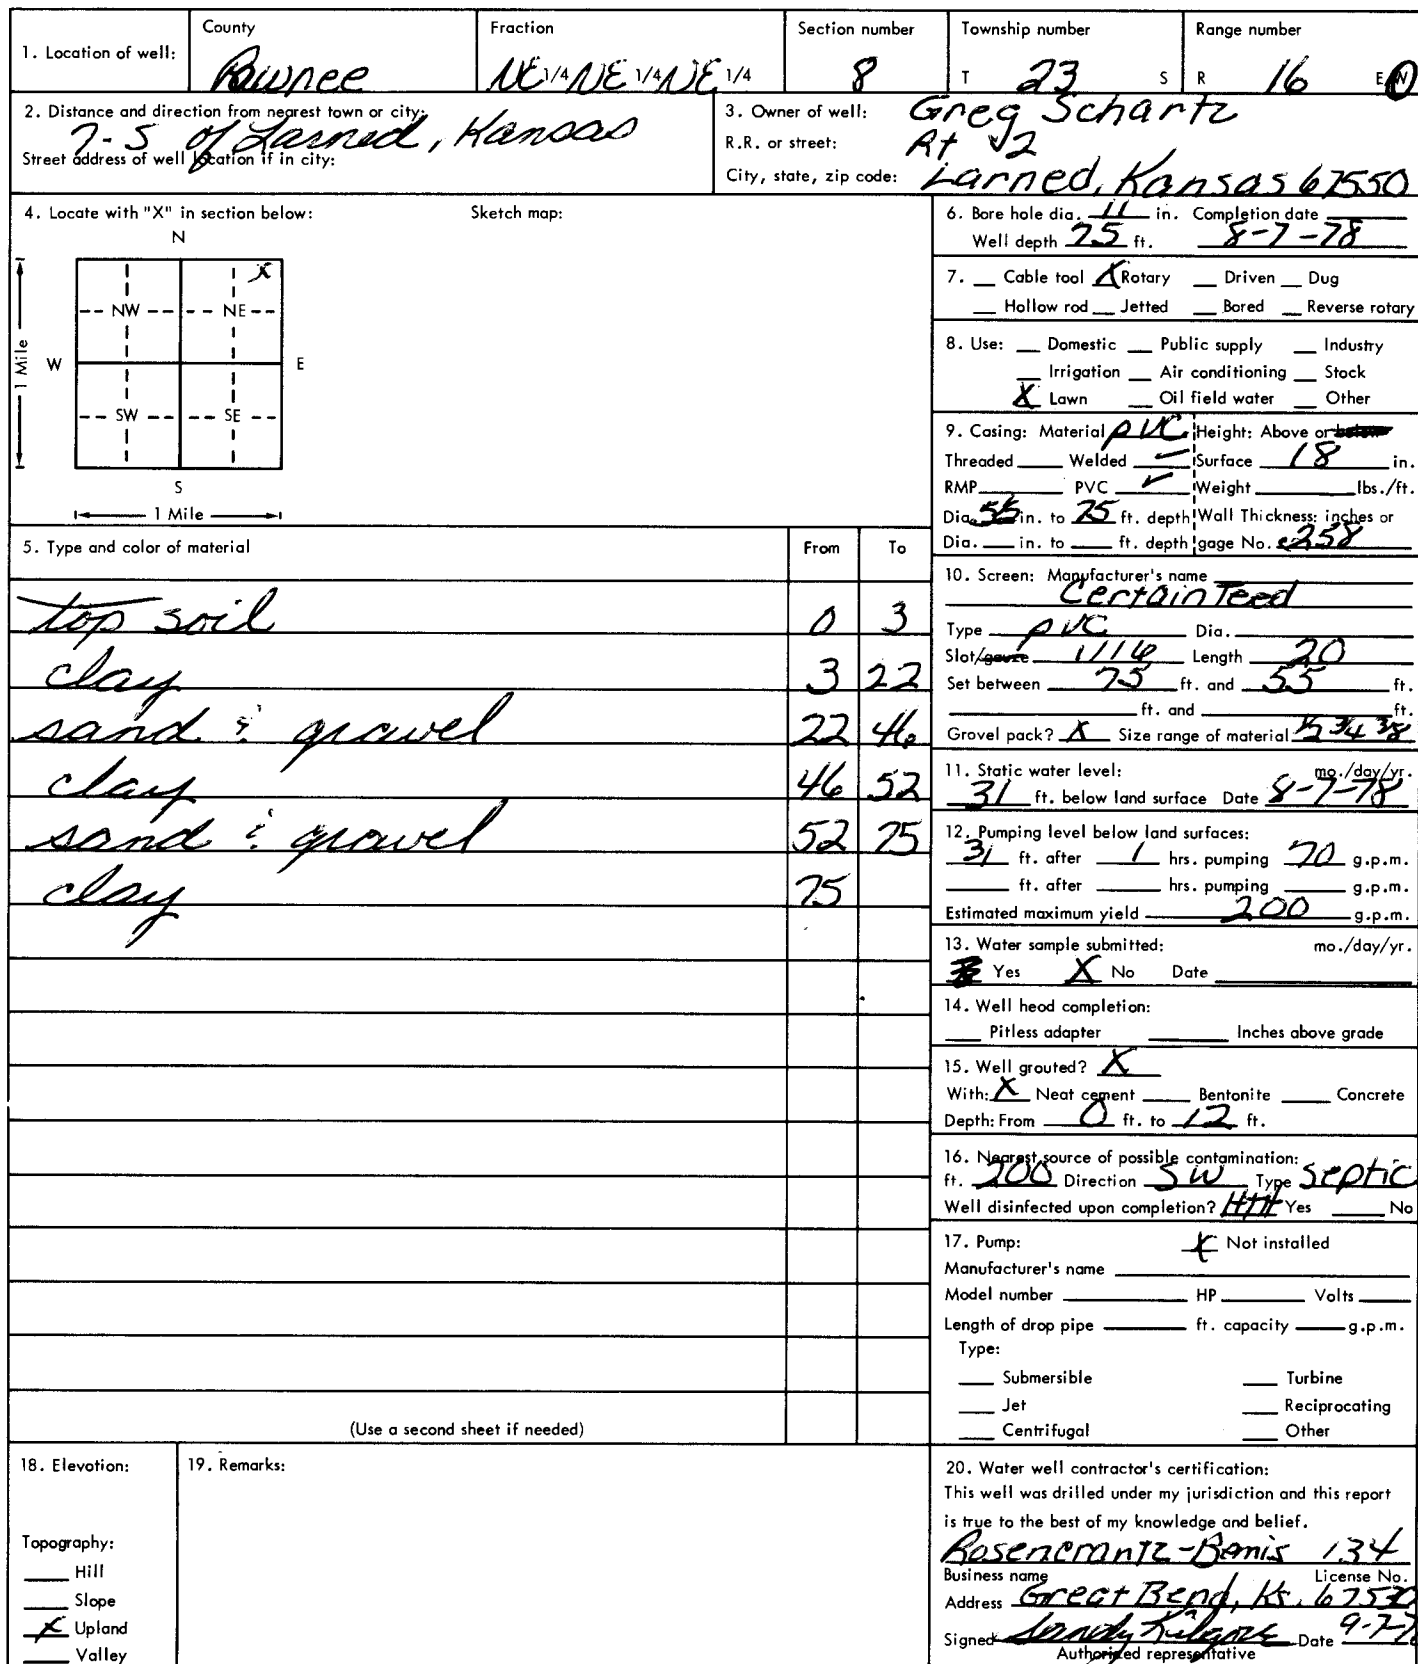 1. Location of well: County Pawnee Fraction NE 1/4 NE 1/4 NE 1/4 Section number 8 Township number T 23 S Range number R 16 E W
2. Distance and direction from nearest town or city: 7-S of Larned, Kansas
Street address of well location if in city:
3. Owner of well: Greg Schartz
R.R. or street: Rt 2
City, state, zip code: Larned, Kansas 67550
4. Locate with "X" in section below: Sketch map:
N
X
NW NE
W E
1 Mile
SW SE
S
1 Mile
5. Type and color of material From To
top soil 0 3
clay 3 22
sand & gravel 22 46
clay 46 52
sand & gravel 52 75
clay 75
(Use a second sheet if needed)
6. Bore hole dia. 11 in. Completion date
Well depth 75 ft. 8-7-78
7. Cable tool X Rotary Driven Dug
Hollow rod Jetted Bored Reverse rotary
8. Use: Domestic Public supply Industry
Irrigation Air conditioning Stock
X Lawn Oil field water Other
9. Casing: Material PVC Height: Above or below
Threaded Welded ✓ Surface 18 in.
RMP PVC ✓ Weight lbs./ft.
Dia. in. to 75 ft. depth Wall Thickness: inches or
Dia. in. to ft. depth gage No. .258
10. Screen: Manufacturer's name
CertainTeed
Type PVC Dia.
Slot/gauze 1/16 Length 20
Set between 75 ft. and 55 ft.
ft. and ft.
Gravel pack? X Size range of material 1/2 3/4 3/8
11. Static water level: mo./day/yr.
31 ft. below land surface Date 8-7-78
12. Pumping level below land surfaces:
31 ft. after 1 hrs. pumping 70 g.p.m.
ft. after hrs. pumping g.p.m.
Estimated maximum yield 200 g.p.m.
13. Water sample submitted: mo./day/yr.
Yes X No Date
14. Well head completion:
Pitless adapter Inches above grade
15. Well grouted? X
With: X Neat cement Bentonite Concrete
Depth: From 0 ft. to 12 ft.
16. Nearest source of possible contamination:
ft. 200 Direction SW Type septic
Well disinfected upon completion? HTH Yes No
17. Pump: X Not installed
Manufacturer's name
Model number HP Volts
Length of drop pipe ft. capacity g.p.m.
Type:
Submersible Turbine
Jet Reciprocating
Centrifugal Other
18. Elevation:
Topography:
Hill
Slope
X Upland
Valley
19. Remarks:
20. Water well contractor's certification:
This well was drilled under my jurisdiction and this report
is true to the best of my knowledge and belief.
Rosencrantz-Bemis 134
Business name License No.
Address Great Bend, Ks. 67530
Signed Kilgore Date 9-7-7
Authorized representative